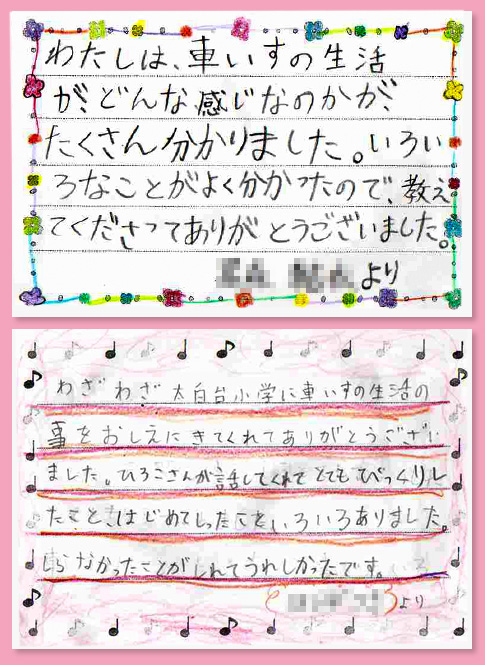 わたしは、車いすの生活
が、どんな感じなのかが、
たくさん分かりました。いろい
ろなことがよく分かったので、教え
てくださってありがとうございました。
より
わざわざ太白台小学に車いすの生活の
事をおしえにきてくれてありがとうござい
ました。ひろこさんが話してくれて とてもびっくりし
たことはじめてしったことい、ろいろありました。
しらなかったことがしれてうれしかったです。
より